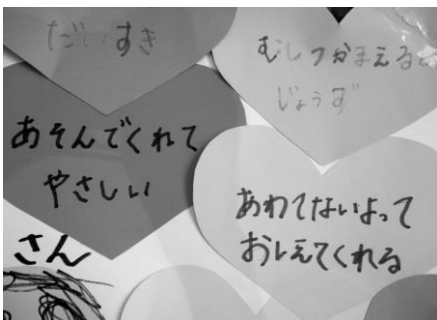 だいすき
むしつかまえると
じょうず
あそんでくれて
やさしい
あわてないよって
おしえてくれる
さん